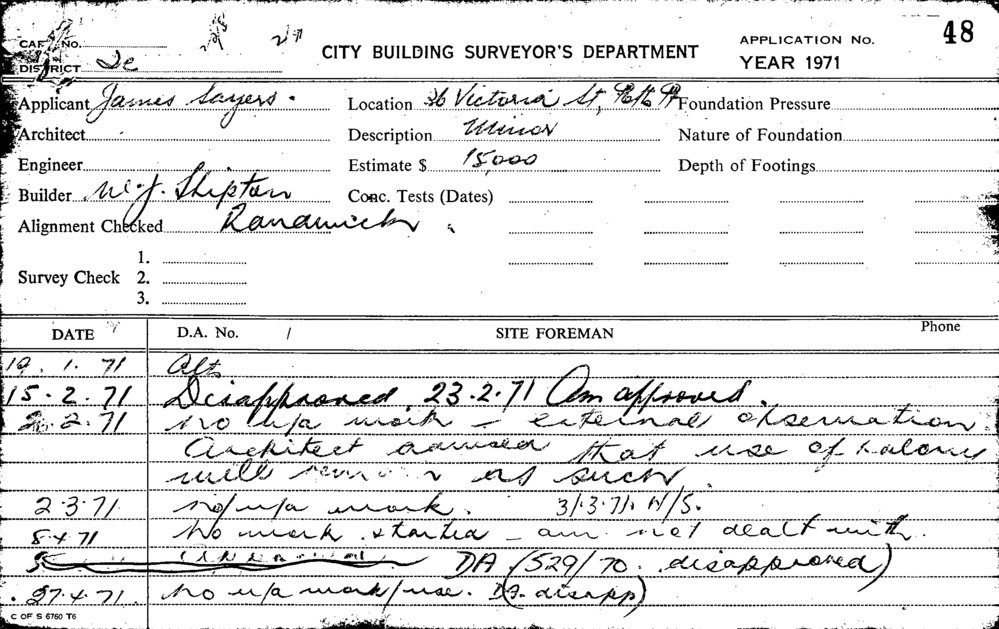 CITY BUILDING SURVEYOR'S DEPARTMENT
APPLICATION No. 48
YEAR 1971
CARD No.
DISTRICT 2e
Applicant James Sayers. Location 36 Victoria St, Potts Pt Foundation Pressure
Architect Description Minor Nature of Foundation
Engineer Estimate $ 15,000 Depth of Footings
Builder W. J. Shipton Conc. Tests (Dates)
Alignment Checked Randwick
1.
Survey Check 2.
3.
DATE D.A. No. / SITE FOREMAN Phone
19. 1. 71 Alts
15. 2. 71 Disapproved. 23.2.71 Am approved.
2.71 No u/a work - external observation.
Architect advised that use of
will as such
2.3.71 no u/a work. 31.3.71. N/S.
8 4 71 No work started - am. not dealt with.
DA (529/70. disapproved)
27.4.71. No u/a work/use. (DA. disapp)
C OF S 6760 T6